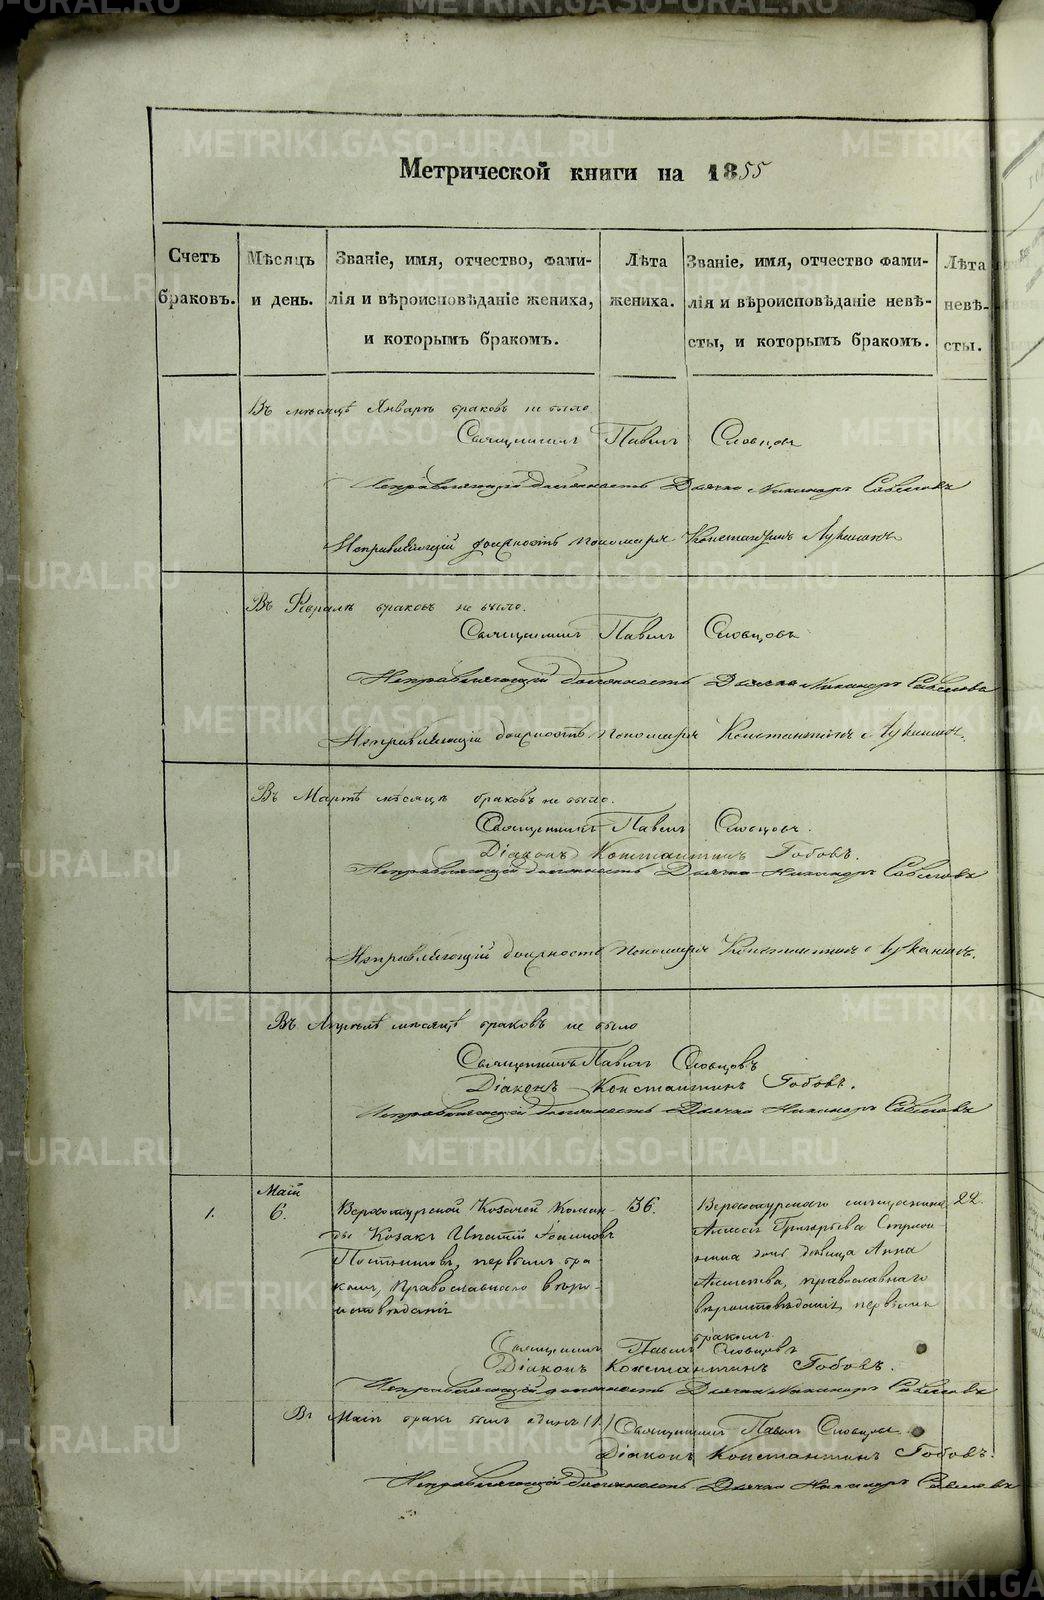 Метрической книги на 1855
Счетъ браковъ.
Мѣсяцъ и день.
Званіе, имя, отчество, фами-
лія и вѣроисповѣданіе жениха,
и которымъ бракомъ.
Лѣта
жениха.
Званіе, имя, отчество фами-
лія и вѣроисповѣданіе невѣ-
сты, и которымъ бракомъ.
Лѣта
невѣ-
сты.
Въ мѣсяцѣ Январѣ браковъ не было
Священникъ Павелъ Словцовъ
Исправляющій должность Дьячка Никаноръ
Исправляющій должность пономаря Константинъ
Въ Февралѣ браковъ не было.
Священникъ Павелъ Словцовъ
Исправляющій должность Дьячка Никаноръ
Исправляющій должность Пономаря Константинъ
Въ Мартѣ мѣсяцѣ браковъ не было.
Священникъ Павелъ Словцовъ.
Діаконъ Константинъ Гобовъ.
Исправляющій должность Дьячка Никаноръ
Исправляющій должность Пономаря Константинъ
Въ Апрѣлѣ мѣсяцѣ браковъ не было
Священникъ Павелъ Словцовъ
Діаконъ Константинъ Гобовъ.
Исправляющій должность Дьячка Никаноръ
1.
Маій
6.
Верхотурской Козачей Коман-
ды Козакъ Ипатій
Постниковъ, первымъ бра
комъ, Православнаго вѣро-
исповѣданія
36.
Верхотурскаго
Алексѣя Григорьева
дочь девица Анна
Алексѣева, православнаго
вѣроисповѣданія, первымъ
бракомъ.
22.
Священникъ Павелъ Словцовъ
Діаконъ Константинъ Гобовъ.
Исправляющій должность Дьячка Никаноръ
Въ Маіѣ бракъ былъ одинъ (1.) Священникъ Павелъ Словцовъ
Діаконъ Константинъ Гобовъ.
Исправляющій должность Дьячка Никаноръ
METRIKI.GASO-URAL.RU